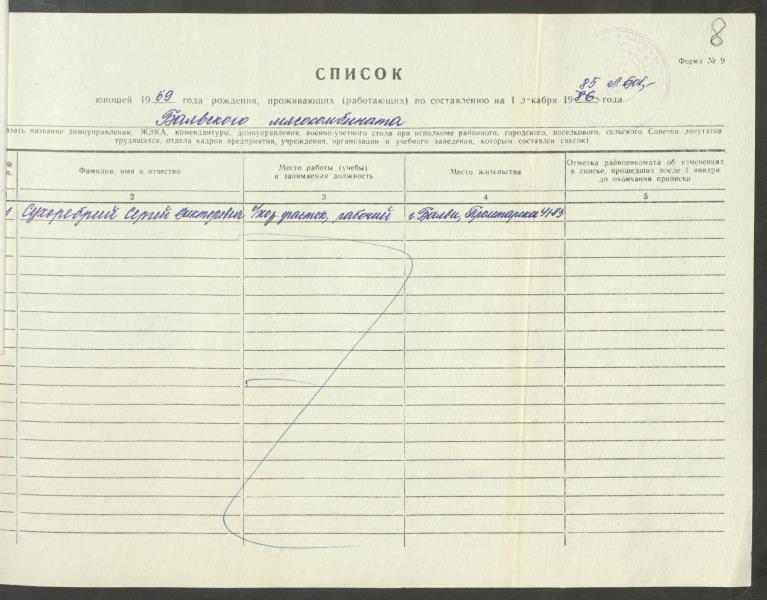 8
Форма № 9
СПИСОК
юношей 1969 года рождения, проживающих (работающих) по составлению на 1 декабря 1986 года
85
Балвского мясокомбината
азать название домоуправления, ЖЭКА, комендантуры, домоуправления, военно-учетного стола при исполкоме районного, городского, поселкового, сельского Советов депутатов
трудящихся, отдела кадров предприятия, учреждения, организации и учебного заведения, которым составлен список)
Фамилия, имя и отчество
Место работы (учебы)
и занимаемая должность
Место жительства
Отметка райвоенкомата об изменениях
в списке, прошедших после 1 января
до окончания приписки
1 2 3 4 5
1 Сухоребрий Сергей Викторович хоз участок, рабочий г. Балви,